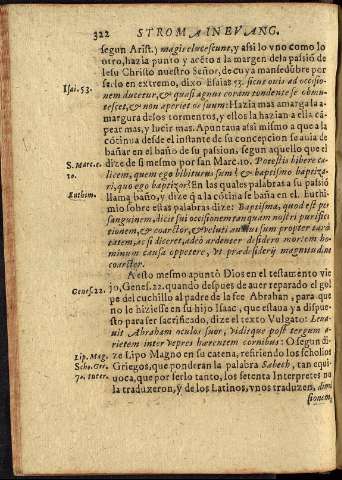 322 STROMA IN EVANG.
segun Arist.) magis elucescunt, y assi lo vno como lo
otro, hazia punto y acẽto a la margen dela passiõ de
Iesu Christo nuestro Señor, de cuya mansedũbre por
serlo en extremo, dixo Esaias 53. sicut ouis ad occisio-
Isai. 53.
nem ducetur, & quasi agnus coram tondente se obmu-
tescet, & non aperiet os suum: Hazia mas amarga la a-
margura destos tormentos, y ellos la hazian a ella cã-
pear mas, y lucir mas. Apuntaua assi mismo a que a la
cõtinua desde el instante de su concepcion se auia de
bañar en el baño de su passion, segun aquello que el
S. Marc. c.
10.
dize de si mesmo por san Marc. 10. Potestis bibere ca-
licem, quem ego bibiturus sum? & baptismo baptiza-
ri, quo ego baptizor? En las quales palabras a su passiõ
Euthim.
llama baño, y dize q̃ a la cõtina se baña en el. Euthi-
mio sobre estas palabras dize: Baptisma, quod est per
sanguinem, dicit sui occisionem tanquam nostri purifica
tionem, & coarctor, & veluti anxius sum propter tard
tatem, ac si diceret, adeò ardenter desidero mortem ho-
minum causa oppetere, vt præ desiderij magnitudine
coarcter.
A esto mesmo apuntò Dios en el testamento vie
Genes. 22.
jo, Genes. 22. quando despues de auer reparado el gol
pe del cuchillo al padre de la fee Abrahan, para que
no le hiziesse en su hijo Isaac, que estaua ya dispue-
sto para ser sacrificado, dize el texto Vulgato: Leua-
uit Abraham oculos suos, vidítque post tergum a-
rietem inter vepres hærentem cornibus: O segun di-
Lip. Mag.
Scho. Grec.
70. inter.
ze Lipo Magno en su catena, refiriendo los scholios
Griegos, que ponderan la palabra Sabech, tan equi-
uoca, que por serlo tanto, los setenta Interpretes no
la traduxeron, y de los Latinos, vnos traduzen, dimi
sionem,